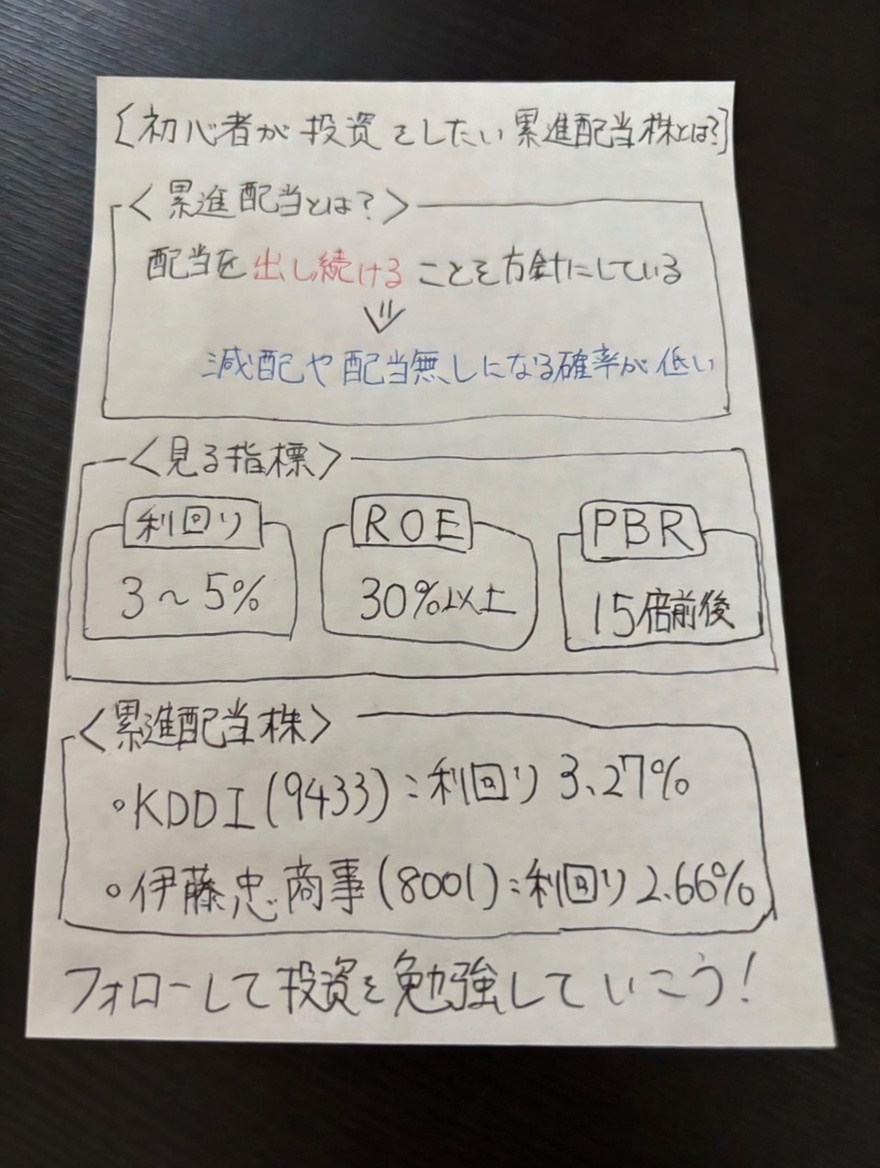 [初心者が投資をしたい累進配当株とは?]
<累進配当とは?>
配当を出し続けることを方針にしている
⇓
減配や配当無しになる確率が低い
<見る指標>
利回り ROE PBR
3~5% 30%以上 15倍前後
<累進配当株>
○KDDI(9433):利回り3.27%
○伊藤忠商事(8001):利回り2.66%
フォローして投資を勉強していこう!